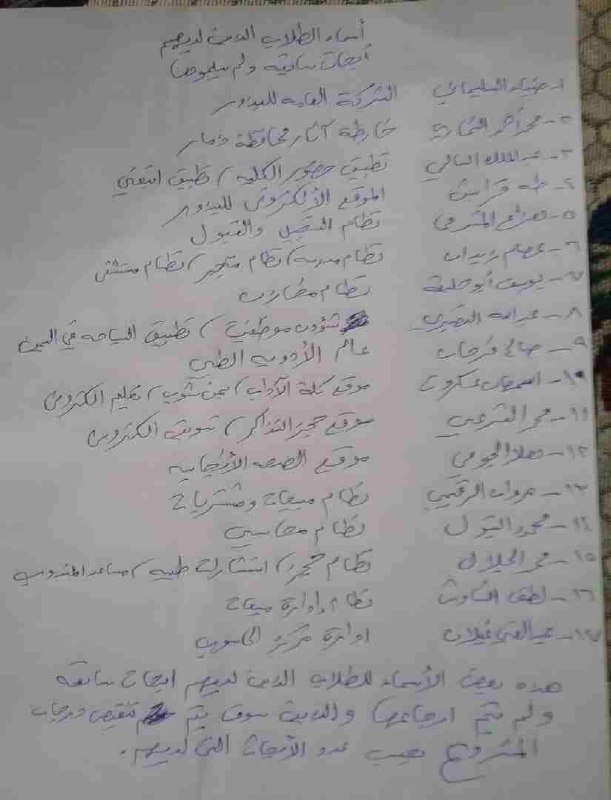 أسماء الطلاب الذين لديهم
أبحاث سابقة ولم يسلموها
١- ضياء السليماني الشركة العامه للبذور
٢- محمد أحمد خارطة آثار محافظة ذمار
٣- عبدالملك السالي تطبيق حضور الكليه / تطبيق
٤- طه الموقع الألكتروني للبذور
٥- هزاع المشرقي نظام التسجيل والقبول
٦- عصام زيدان نظام مدرسه / نظام متجر / نظام مستشفى
٧- يوسف أبو حليقة نظام مطارات
٨- عبدالله شؤون موظفين / تطبيق السياحه في اليمن
٩- صالح فرحان عالم الأدويه الطبي
١٠- موقع كلة الآداب / / تعليم الكتروني
١١- محمد الشرعبي موقع حجز التذاكر / تسويق الكتروني
١٢- موقع الصحه الأنجابيه
١٣- مروان نظام مبيعات ومشتريات
١٤- محمود البتول نظام محاسبي
١٥- محمد الجلال نظام حجز / استشارات طبيه /
١٦- لطف الشاوش نظام إدارة مبيعات
١٧- عبدالغني غيلان ادارة مركز الحاسوب
هذه بعض الأسماء للطلاب الذين لديهم ابحاث سابقه
ولم يتم ارجاعها والذين سوف يتم تنقيص درجات
المشروع بحسب عدد الأبحاث التي لديهم.